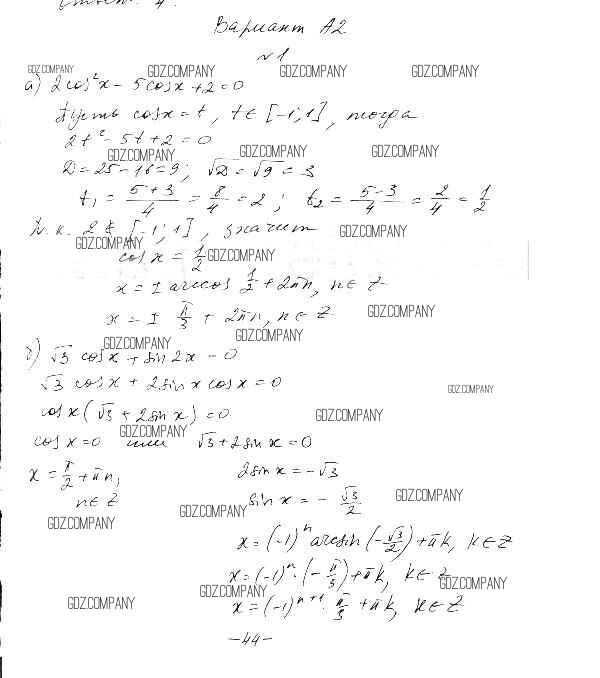 Ответ: 4.
Вариант А2
№1
GDZ.COMPANY GDZ.COMPANY GDZ.COMPANY GDZ.COMPANY
а) 2cos²x − 5cosx + 2 = 0
Пусть cosx = t, t ∈ [−1; 1], тогда
2t² − 5t + 2 = 0
GDZ.COMPANY GDZ.COMPANY GDZ.COMPANY
D = 25 − 16 = 9; √D = √9 = 3
t₁ = (5+3)/4 = 8/4 = 2; t₂ = (5−3)/4 = 2/4 = 1/2
т.к. 2 ∉ [−1; 1], значит GDZ.COMPANY
GDZ.COMPANY
cos x = 1/2 GDZ.COMPANY
x = ± arccos 1/2 + 2πn, n ∈ Z
x = ± π/3 + 2πn, n ∈ Z GDZ.COMPANY
GDZ.COMPANY GDZ.COMPANY
б) √3 cosx + sin2x = 0
√3 cosx + 2sinx cosx = 0 GDZ.COMPANY
cosx(√3 + 2sinx) = 0 GDZ.COMPANY
GDZ.COMPANY
cosx = 0 или √3 + 2sinx = 0
x = π/2 + πn, 2sinx = −√3
n ∈ Z sinx = − √3/2 GDZ.COMPANY
GDZ.COMPANY GDZ.COMPANY
x = (−1)ⁿ arcsin(−√3/2) + πk, k ∈ Z
x = (−1)ⁿ · (−π/3) + πk, k ∈ Z
GDZ.COMPANY GDZ.COMPANY
GDZ.COMPANY x = (−1)ⁿ⁺¹ · π/3 + πk, k ∈ Z
−44−